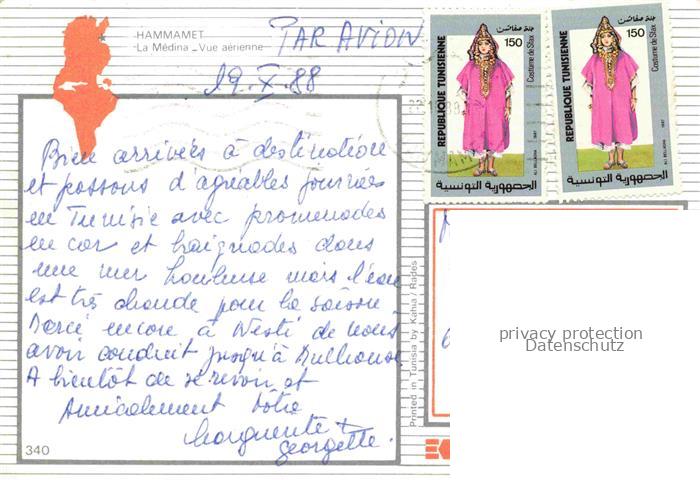 HAMMAMET
La Médina _ Vue aérienne
PAR AVION
19.X.88
Bien arrivées à destination
et passons d'agréables journées
en Tunisie avec promenades
en car et baignades dans
une mer houleuse mais l'eau
est très chaude pour la saison
Merci encore à Westi de nous
avoir conduit jusqu'à Mulhouse.
A bientôt de se revoir et
Amicalement Vôtre
Marguerite +
Georgette.
340
Printed in Tunisia by Kahia / Rades
REPUBLIQUE TUNISIENNE
150
جلوة صفاقس
Costume de Sfax
1987
ALI BELLAGHA
الجمهورية التونسية
REPUBLIQUE TUNISIENNE
150
جلوة صفاقس
Costume de Sfax
1987
ALI BELLAGHA
الجمهورية التونسية
privacy protection
Datenschutz